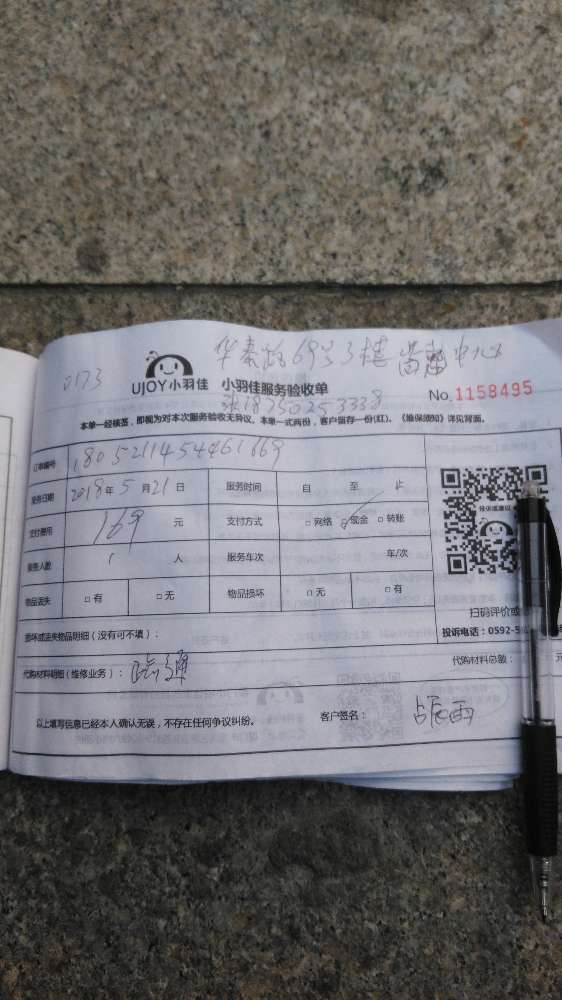 0173
华泰路69号3楼 中心
UJOY小羽佳 小羽佳服务验收单
No.1158495
张18750253338
本单一经核签，即视为对本次服务验收无异议。本单一式两份，客户留存一份(红)。《维保须知》详见背面。
订单编号 180521145461669
服务日期 2018年5月21日 服务时间 自 至 止
投诉或建议
支付费用 169 元 支付方式 □网络 ☑现金 □转账
服务人数 1 人 服务车次 年/次
物品丢失 □有 □无 物品损坏 □无 □有
扫码评价或
损坏或丢失物品明细（没有可不填）：
投诉电话：0592-5
代购材料明细（维修业务）：
代购材料总额： 元
以上填写信息已经本人确认无误，不存在任何争议纠纷。 客户签名：